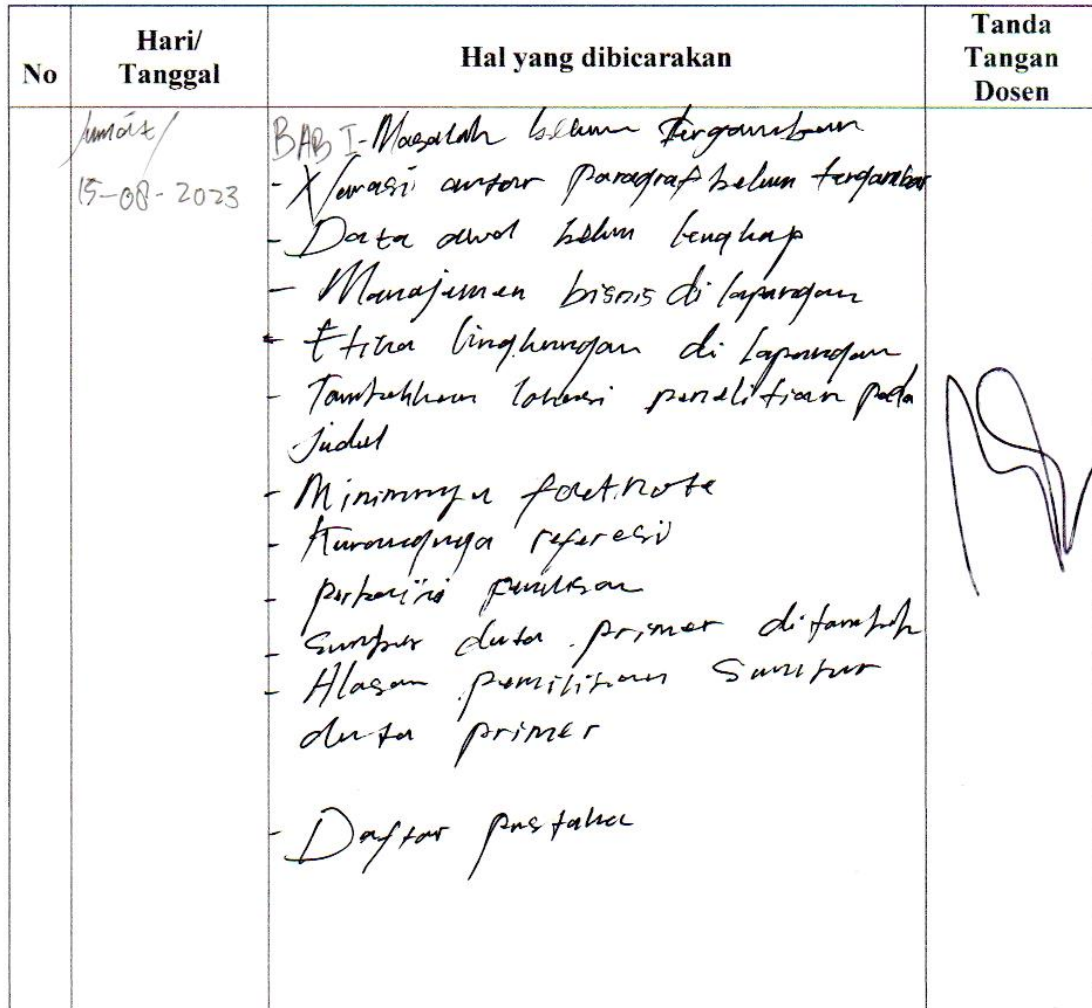 No
Hari/
Tanggal
Hal yang dibicarakan
Tanda
Tangan
Dosen
Jum'at/
15-08-2023
BAB I - Masalah belum tergambar
- antar paragraf belum tergambar
- Data awal belum lengkap
- Manajemen bisnis di lapangan
- Etika lingkungan di lapangan
- Tambahkan lokasi penelitian pada
judul
- Minimnya footnote
- Kurangnya referesi
- perbaiki penulisan
- Sumber data primer ditambah
- Alasan pemilihan Sumber
data primer
- Daftar pustaka